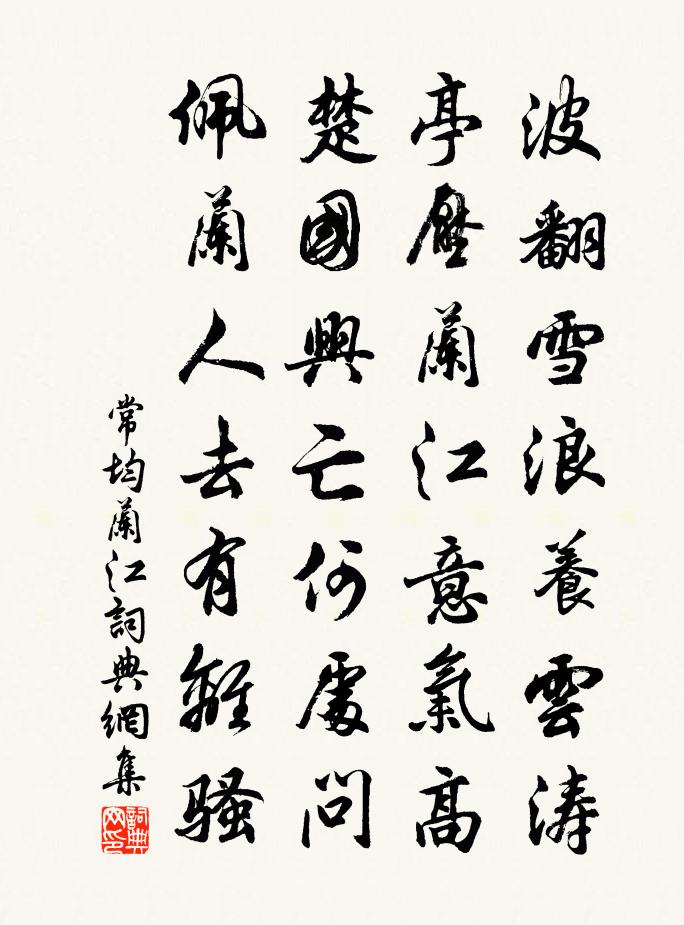 波翻雪浪養雲濤
亭壓蘭江意氣高
楚國興亡何處問
佩蘭人去有離騷
常均蘭江詞典網集
詞典网印